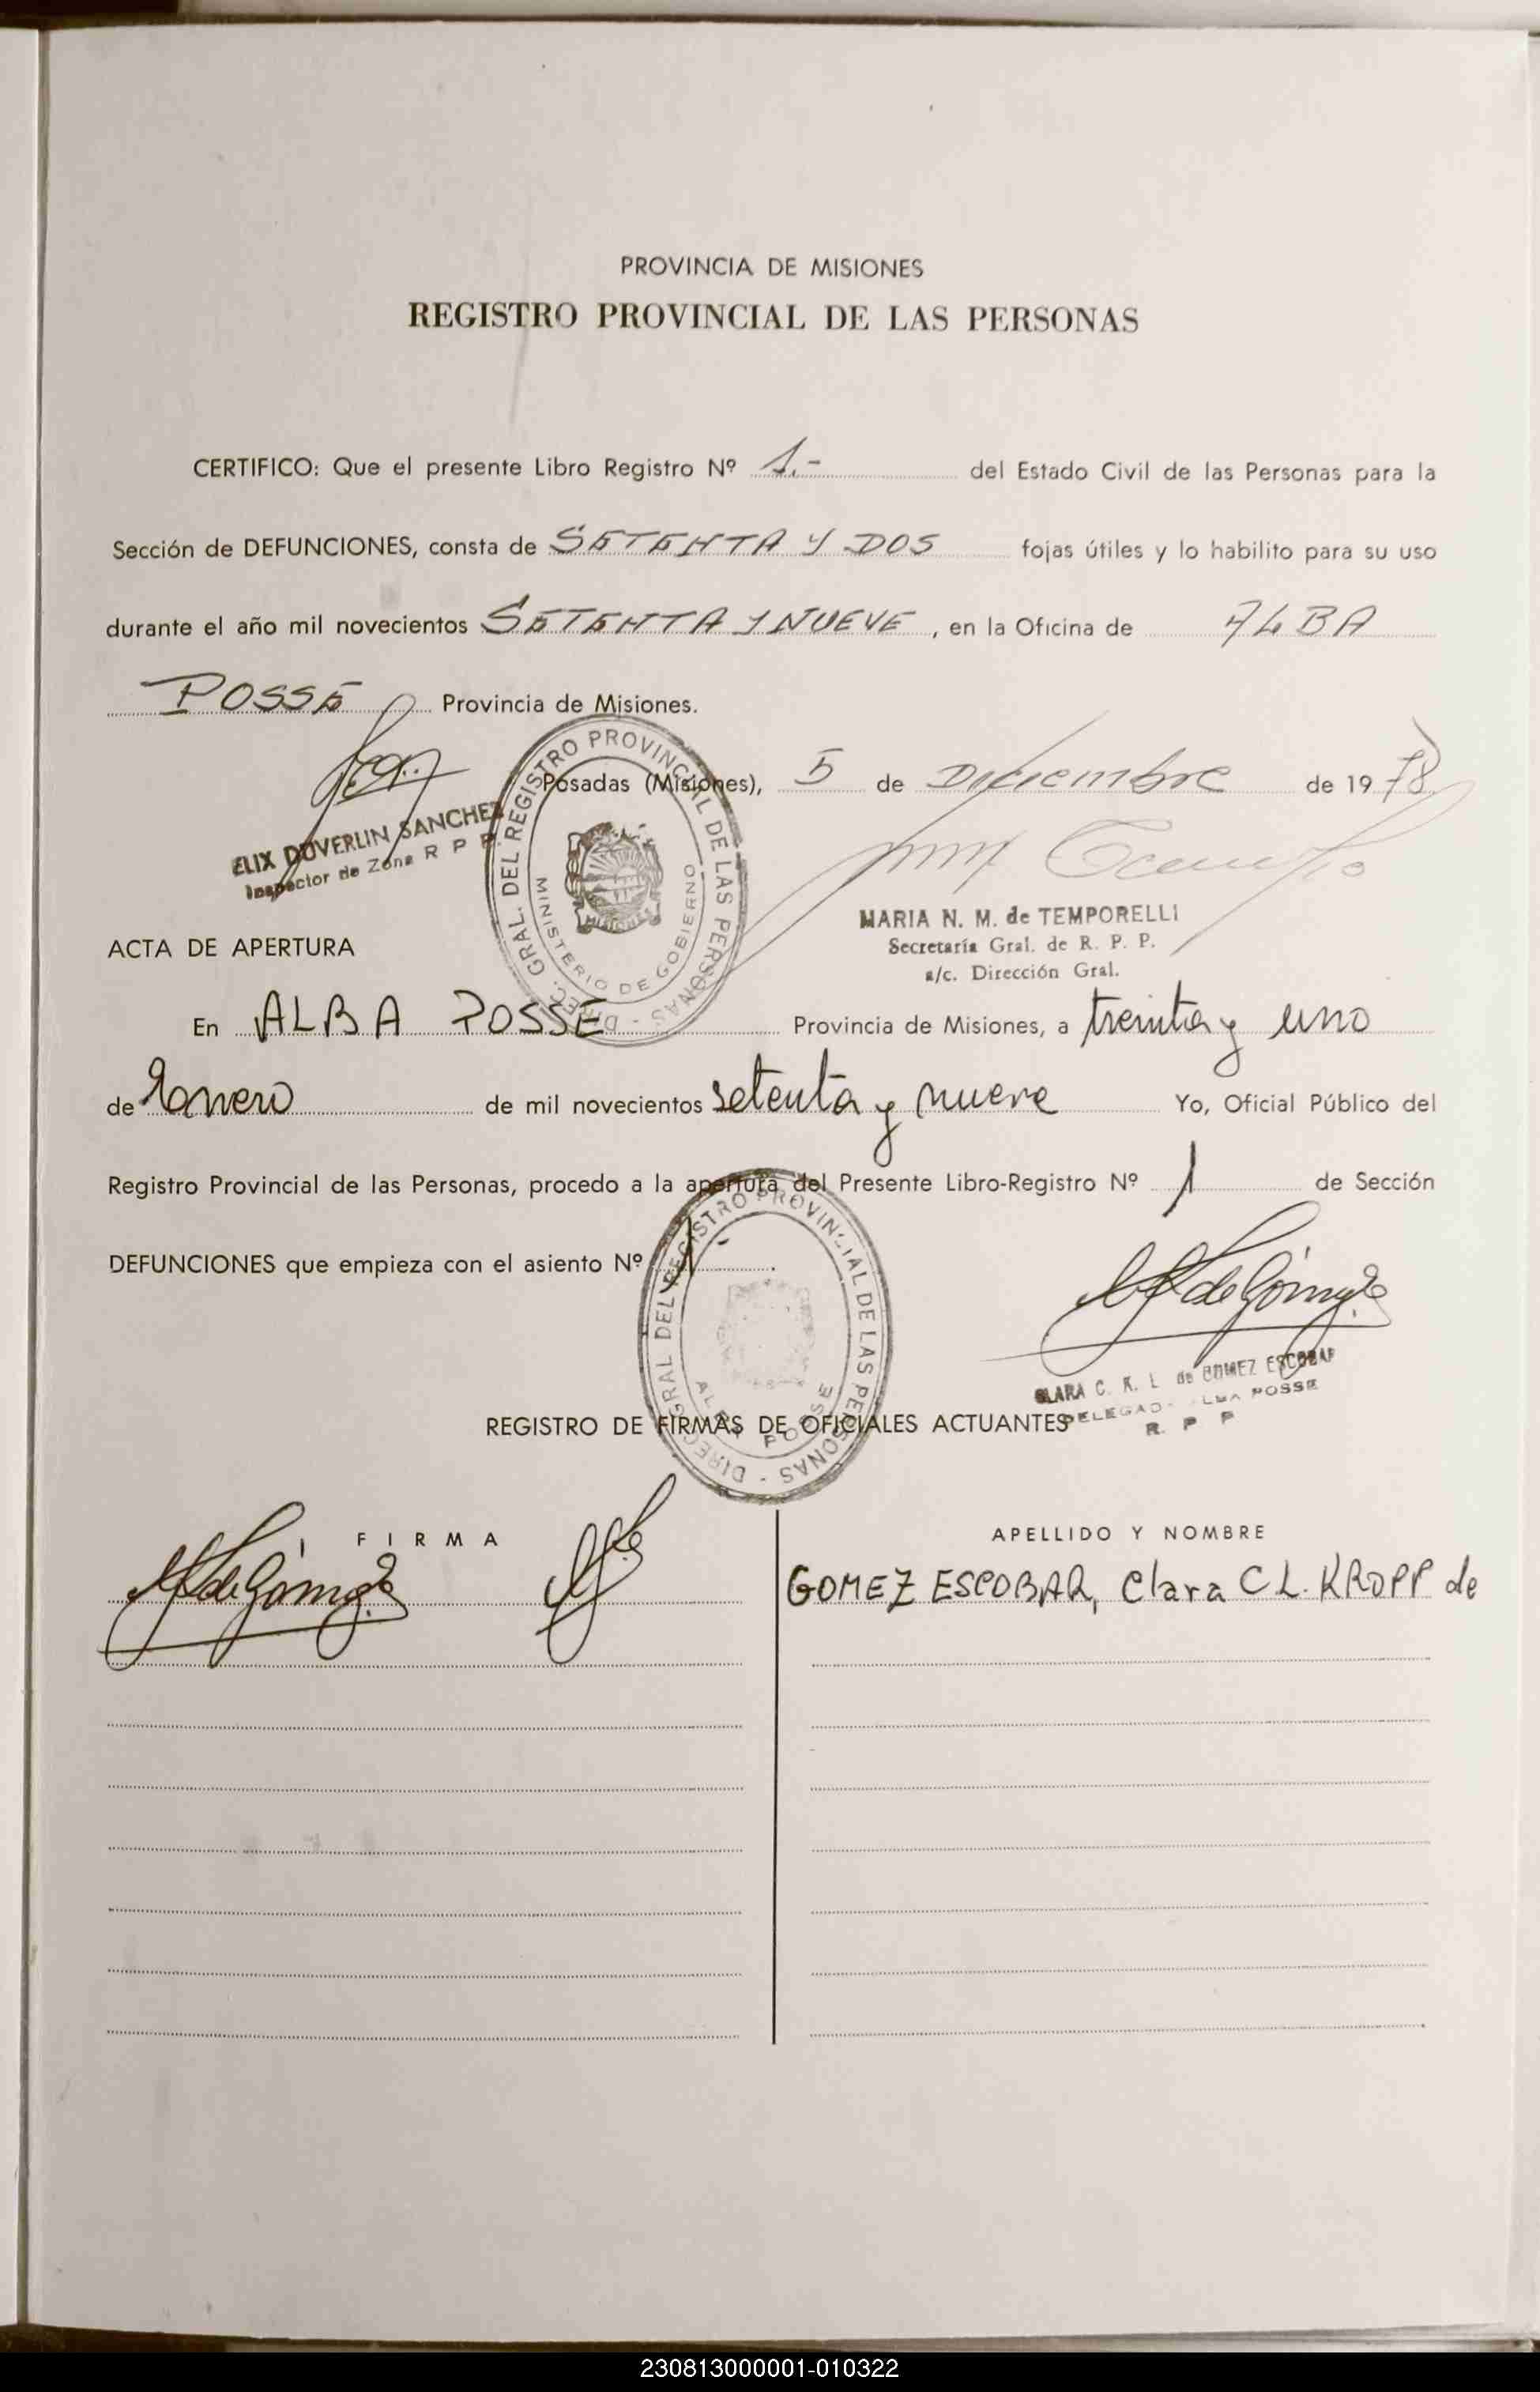 PROVINCIA DE MISIONES
REGISTRO PROVINCIAL DE LAS PERSONAS
CERTIFICO: Que el presente Libro Registro Nº 1.- del Estado Civil de las Personas para la
Sección de DEFUNCIONES, consta de SETENTA Y DOS fojas útiles y lo habilito para su uso
durante el año mil novecientos SETENTA Y NUEVE, en la Oficina de ALBA
POSSE Provincia de Misiones.
Posadas (Misiones), 5 de Diciembre de 1978
DIREC. GRAL. DEL REGISTRO PROVINCIAL DE LAS PERSONAS -
MINISTERIO DE GOBIERNO
MISIONES
ELIX DUVERLIN SANCHEZ
Inspector de Zona R P P
MARIA N. M. de TEMPORELLI
Secretaría Gral. de R. P. P.
a/c. Dirección Gral.
ACTA DE APERTURA
En ALBA POSSE Provincia de Misiones, a treinta y uno
de Enero de mil novecientos setenta y nueve Yo, Oficial Público del
Registro Provincial de las Personas, procedo a la apertura del Presente Libro-Registro Nº 1 de Sección
DEFUNCIONES que empieza con el asiento Nº 1.-
DIREC GRAL DEL REGISTRO PROVINCIAL DE LAS PERSONAS -
ALBA POSSE
de Gómez
CLARA C. K. L de GOMEZ ESCOBAR
POSSE
R. P P
REGISTRO DE FIRMAS DE OFICIALES ACTUANTES
FIRMA APELLIDO Y NOMBRE
de Gómez GOMEZ ESCOBAR, Clara C L. KROPP de
230813000001-010322